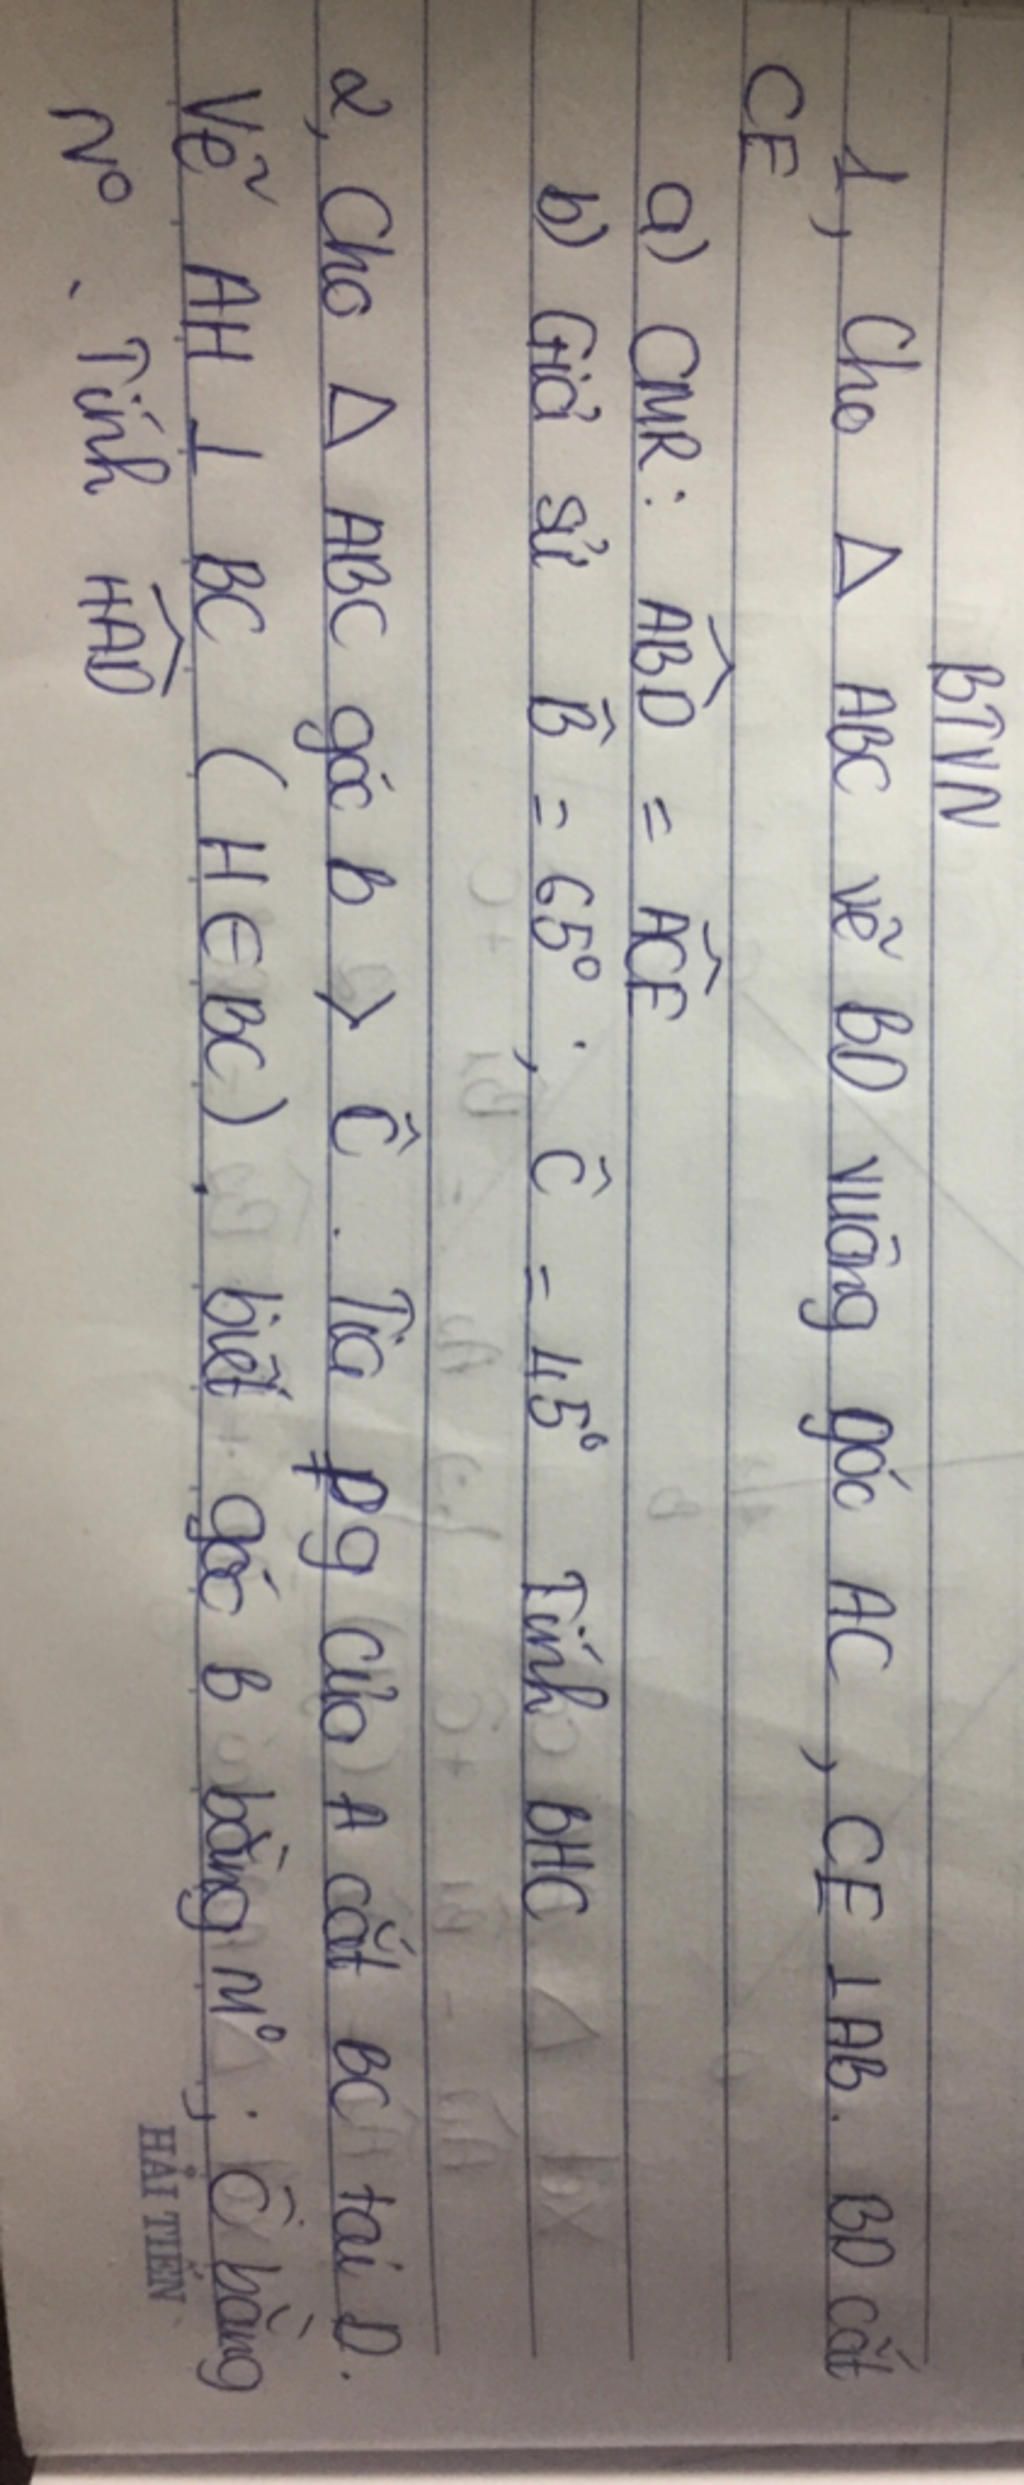 BTVN
1, Cho Δ ABC vẽ BD vuông góc AC, CE ⊥ AB. BD cắt
CE
a) CMR: ABD̂ = AĈE
b) Giả sử B̂ = 65°; Ĉ = 45° Tính BHC
2, Cho Δ ABC góc B > Ĉ. Tia pg của A cắt BC tại D.
Vẽ AH ⊥ BC (H ∈ BC), biết góc B bằng M°; Ĉ bằng
N°. Tính HÂD
HẢI TIẾN